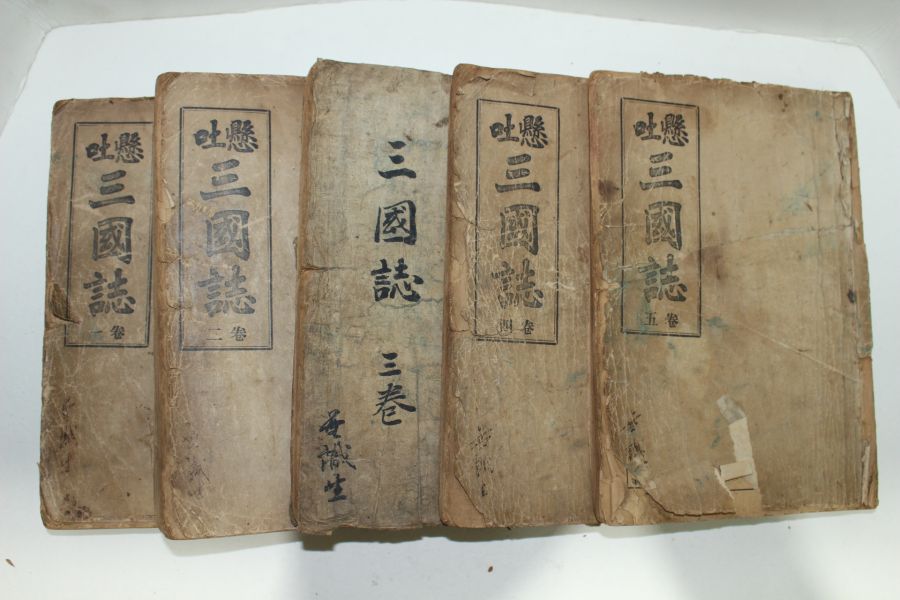 懸吐
三國誌
卷一
懸吐
三國誌
卷二
三國誌 三卷
無識生
懸吐
三國誌
卷四
懸吐
三國誌
卷五